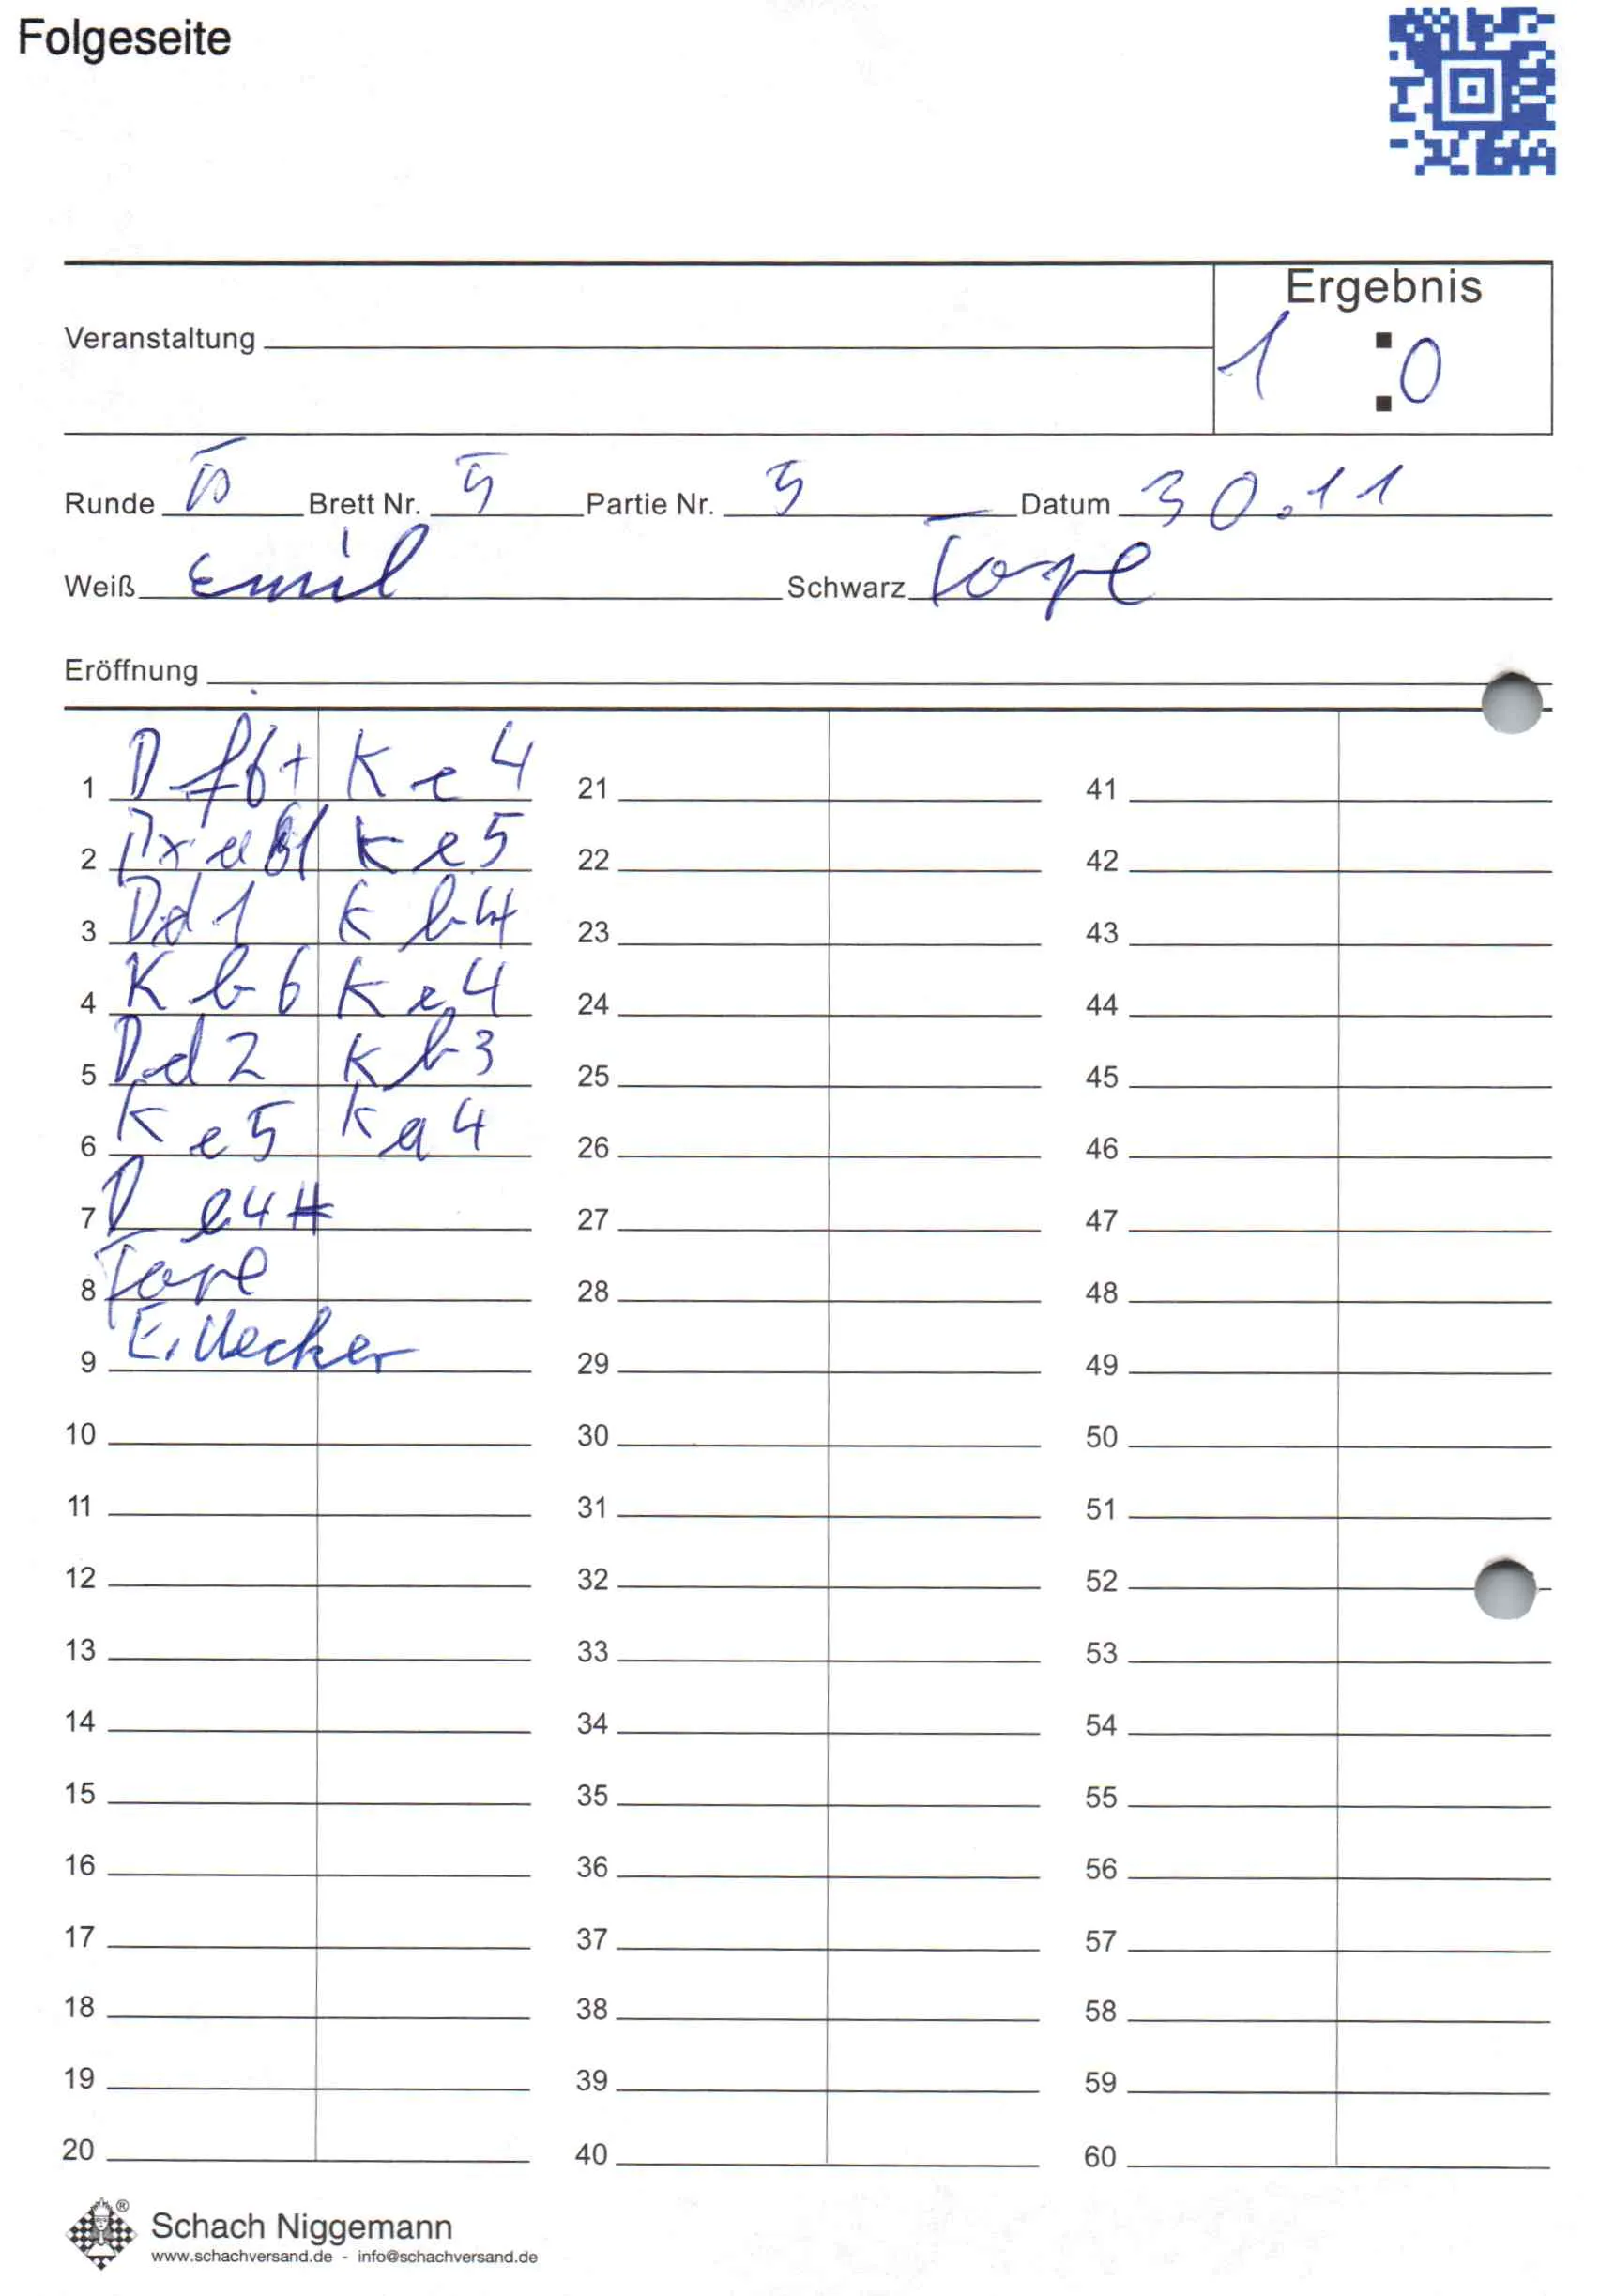 Folgeseite
Ergebnis
Veranstaltung
1 : 0
Runde Brett Nr. 5 Partie Nr. 5 Datum 30.11
Weiß Emil Schwarz
Eröffnung
1 Df6+ Ke4 21 41
2 Ke5 22 42
3 Dd1 Kb4 23 43
4 Kb6 Ke4 24 44
5 Dd2 Kb3 25 45
6 Ke5 Ka4 26 46
7 D e4# 27 47
8 28 48
9 29 49
10 30 50
11 31 51
12 32 52
13 33 53
14 34 54
15 35 55
16 36 56
17 37 57
18 38 58
19 39 59
20 40 60
Schach Niggemann
www.schachversand.de - info@schachversand.de